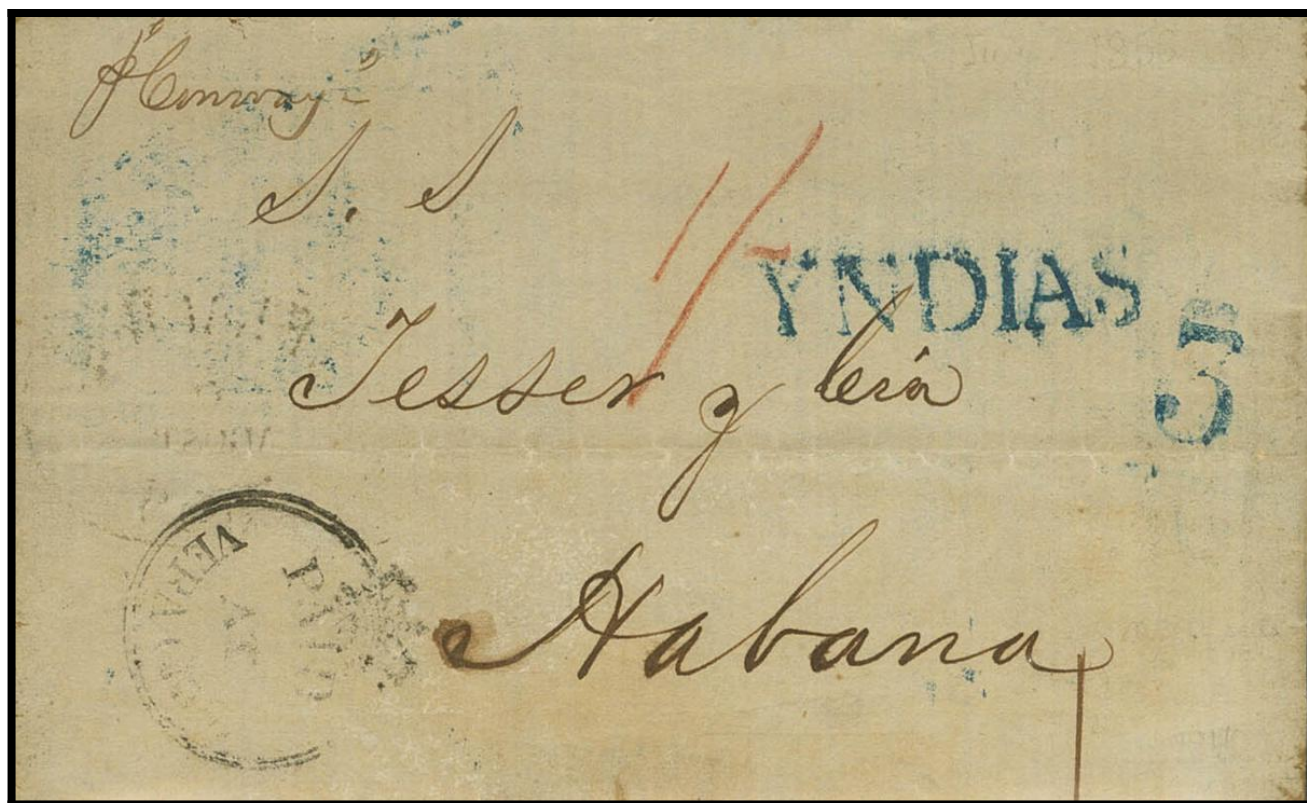 p "Conway"
S. S
YNDIAS
Tesser y Cia
5
Habana
PAID
AT
VERACRUZ